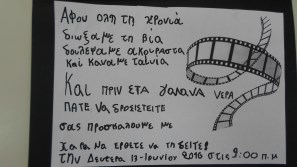 Αφου ολη τη χρονιά
διωξαμε τη βία
δουλεψαμε ακουραστα
και καναμε ταινία
Και πριν στα γαλανα νερα
πατε να δροσιστειτε
σας προσκαλουμε με
χαρα να ερθετε να τη δειτε!
Την Δευτερα 13-Ιουνίου 2016 στις 9:00 π.μ